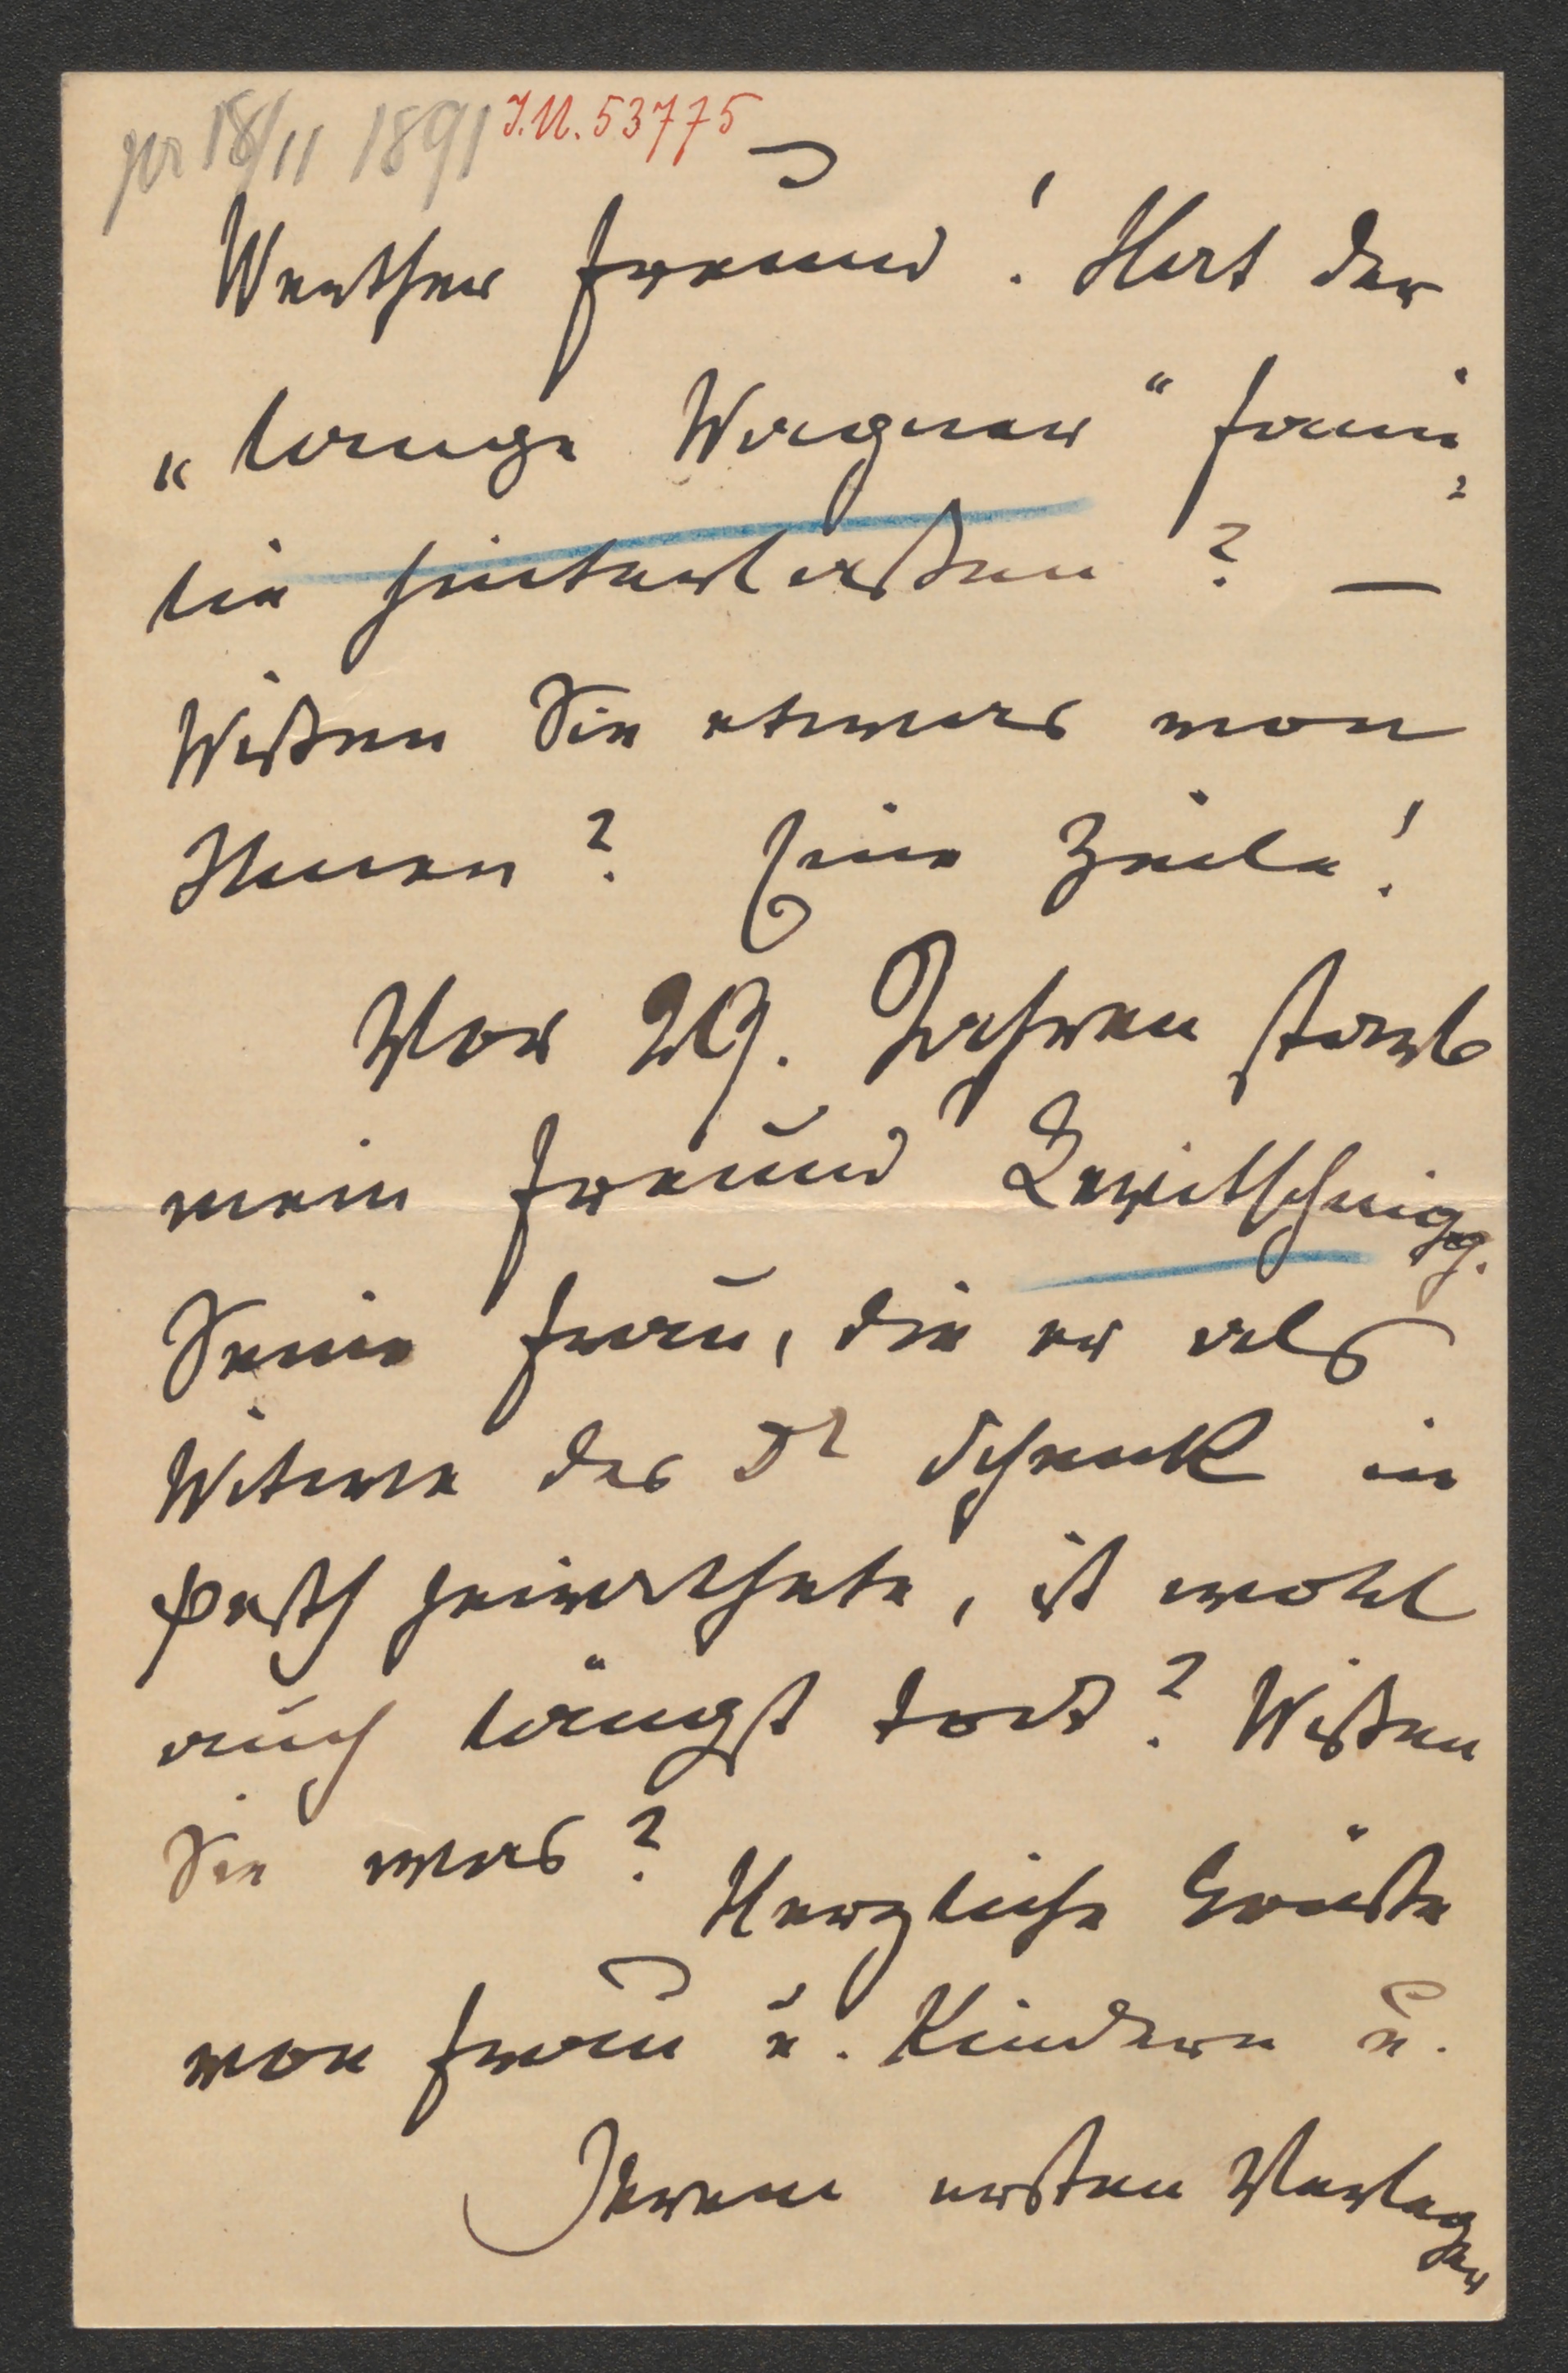 pr 18/11 1891 J.N. 53775
Werther Freund! Hat der
„lange Wagner“ Fami-
lie hinterlaßen? —
Wißen Sie etwas von
Ihnen? Eine Zeile!
Vor 29. Jahren starb
mein Freund Levitschnigg.
Seine Frau, die er als
Witwe des Dr Schenk in
Pesth heirathete, ist wohl
auch längst todt? Wißen
Sie was?
Herzliche Grüße
von Frau u. Kindern u.
Ihrem ersten Verleger